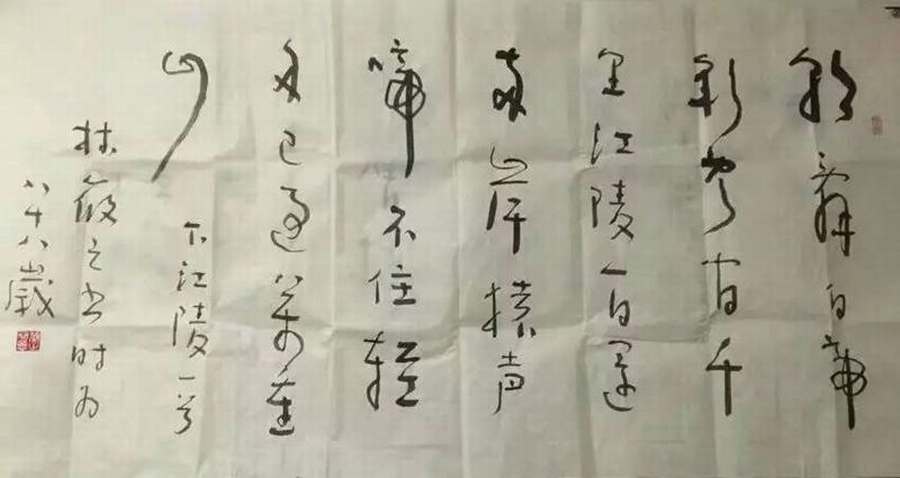 朝辞白帝
彩云间千
里江陵一日还
两岸猿声
啼不住轻
舟已过万重
山
下江陵一首
林筱之书时为
八十八岁